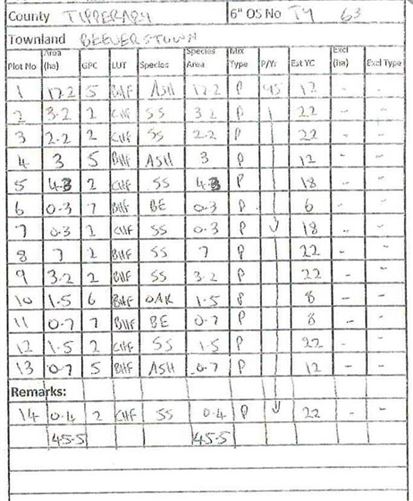 County TIPPERARY 6" OS No TY 63
Townland BEEVERSTOWN
Plot No Area (ha) GPC LUT Species Species Area Mix Type P/Yr Est YC Excl (ha) Excl Type
1 17.2 5 BHF ASH 17.2 P 12 - -
2 3.2 2 CHF SS 3.2 P 22 - -
3 2.2 2 CHF SS 2.2 P 22 - -
4 3 5 BHF ASH 3 P 12 - -
5 4.3 2 CHF SS 4.3 P 18 - -
6 0.3 7 BHF BE 0.3 P 6 - -
7 0.3 2 CHF SS 0.3 P 18 - -
8 7 2 BHF SS 7 P 22 - -
9 3.2 2 BHF SS 3.2 P 22 - -
10 1.5 6 BHF OAK 1.5 P 8 - -
11 0.7 7 BHF BE 0.7 P 8 - -
12 1.5 2 CHF SS 1.5 P 22 - -
13 0.7 5 BHF ASH 0.7 P 12 - -
Remarks:
14 0.4 2 CHF SS 0.4 P 22 - -
45.5 45.5